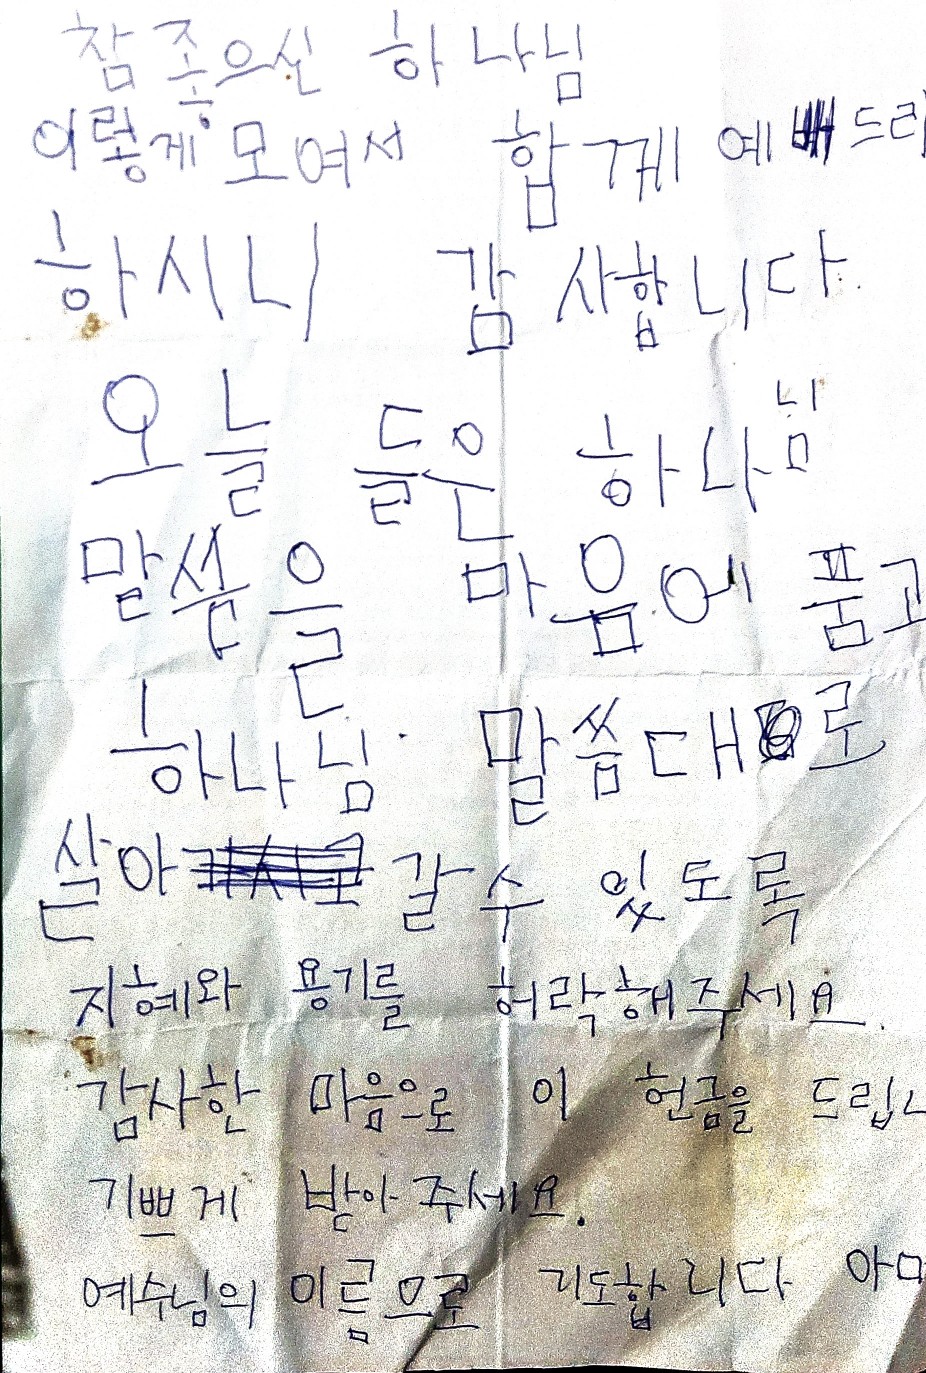 참 좋으신 하나님
이렇게 모여서 함께 예배 드리
하시니 감사합니다.
오늘 들은 하나님
말씀을 마음에 품고
하나님 말씀대로
살아 갈수 있도록
지혜와 용기를 허락해주세요.
감사한 마음으로 이 헌금을 드립니
기쁘게 받아주세요.
예수님의 이름으로 기도합니다 아머